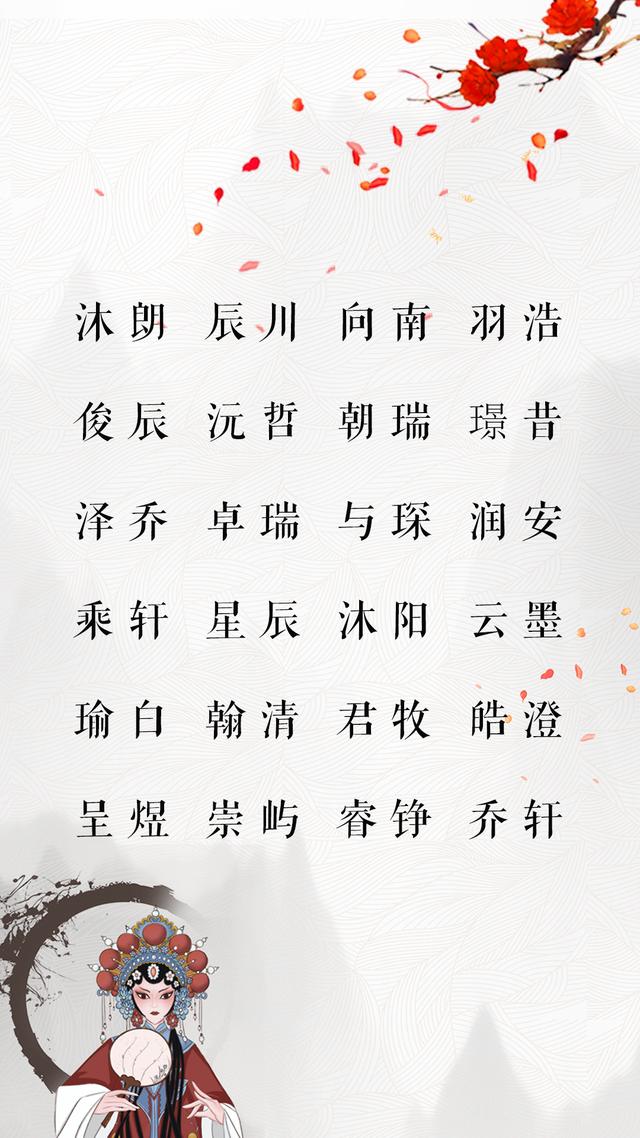 沐朗 辰川 向南 羽浩
俊辰 沅哲 朝瑞 璟昔
泽乔 卓瑞 与琛 润安
乘轩 星辰 沐阳 云墨
瑜白 翰清 君牧 皓澄
呈煜 崇屿 睿铮 乔轩